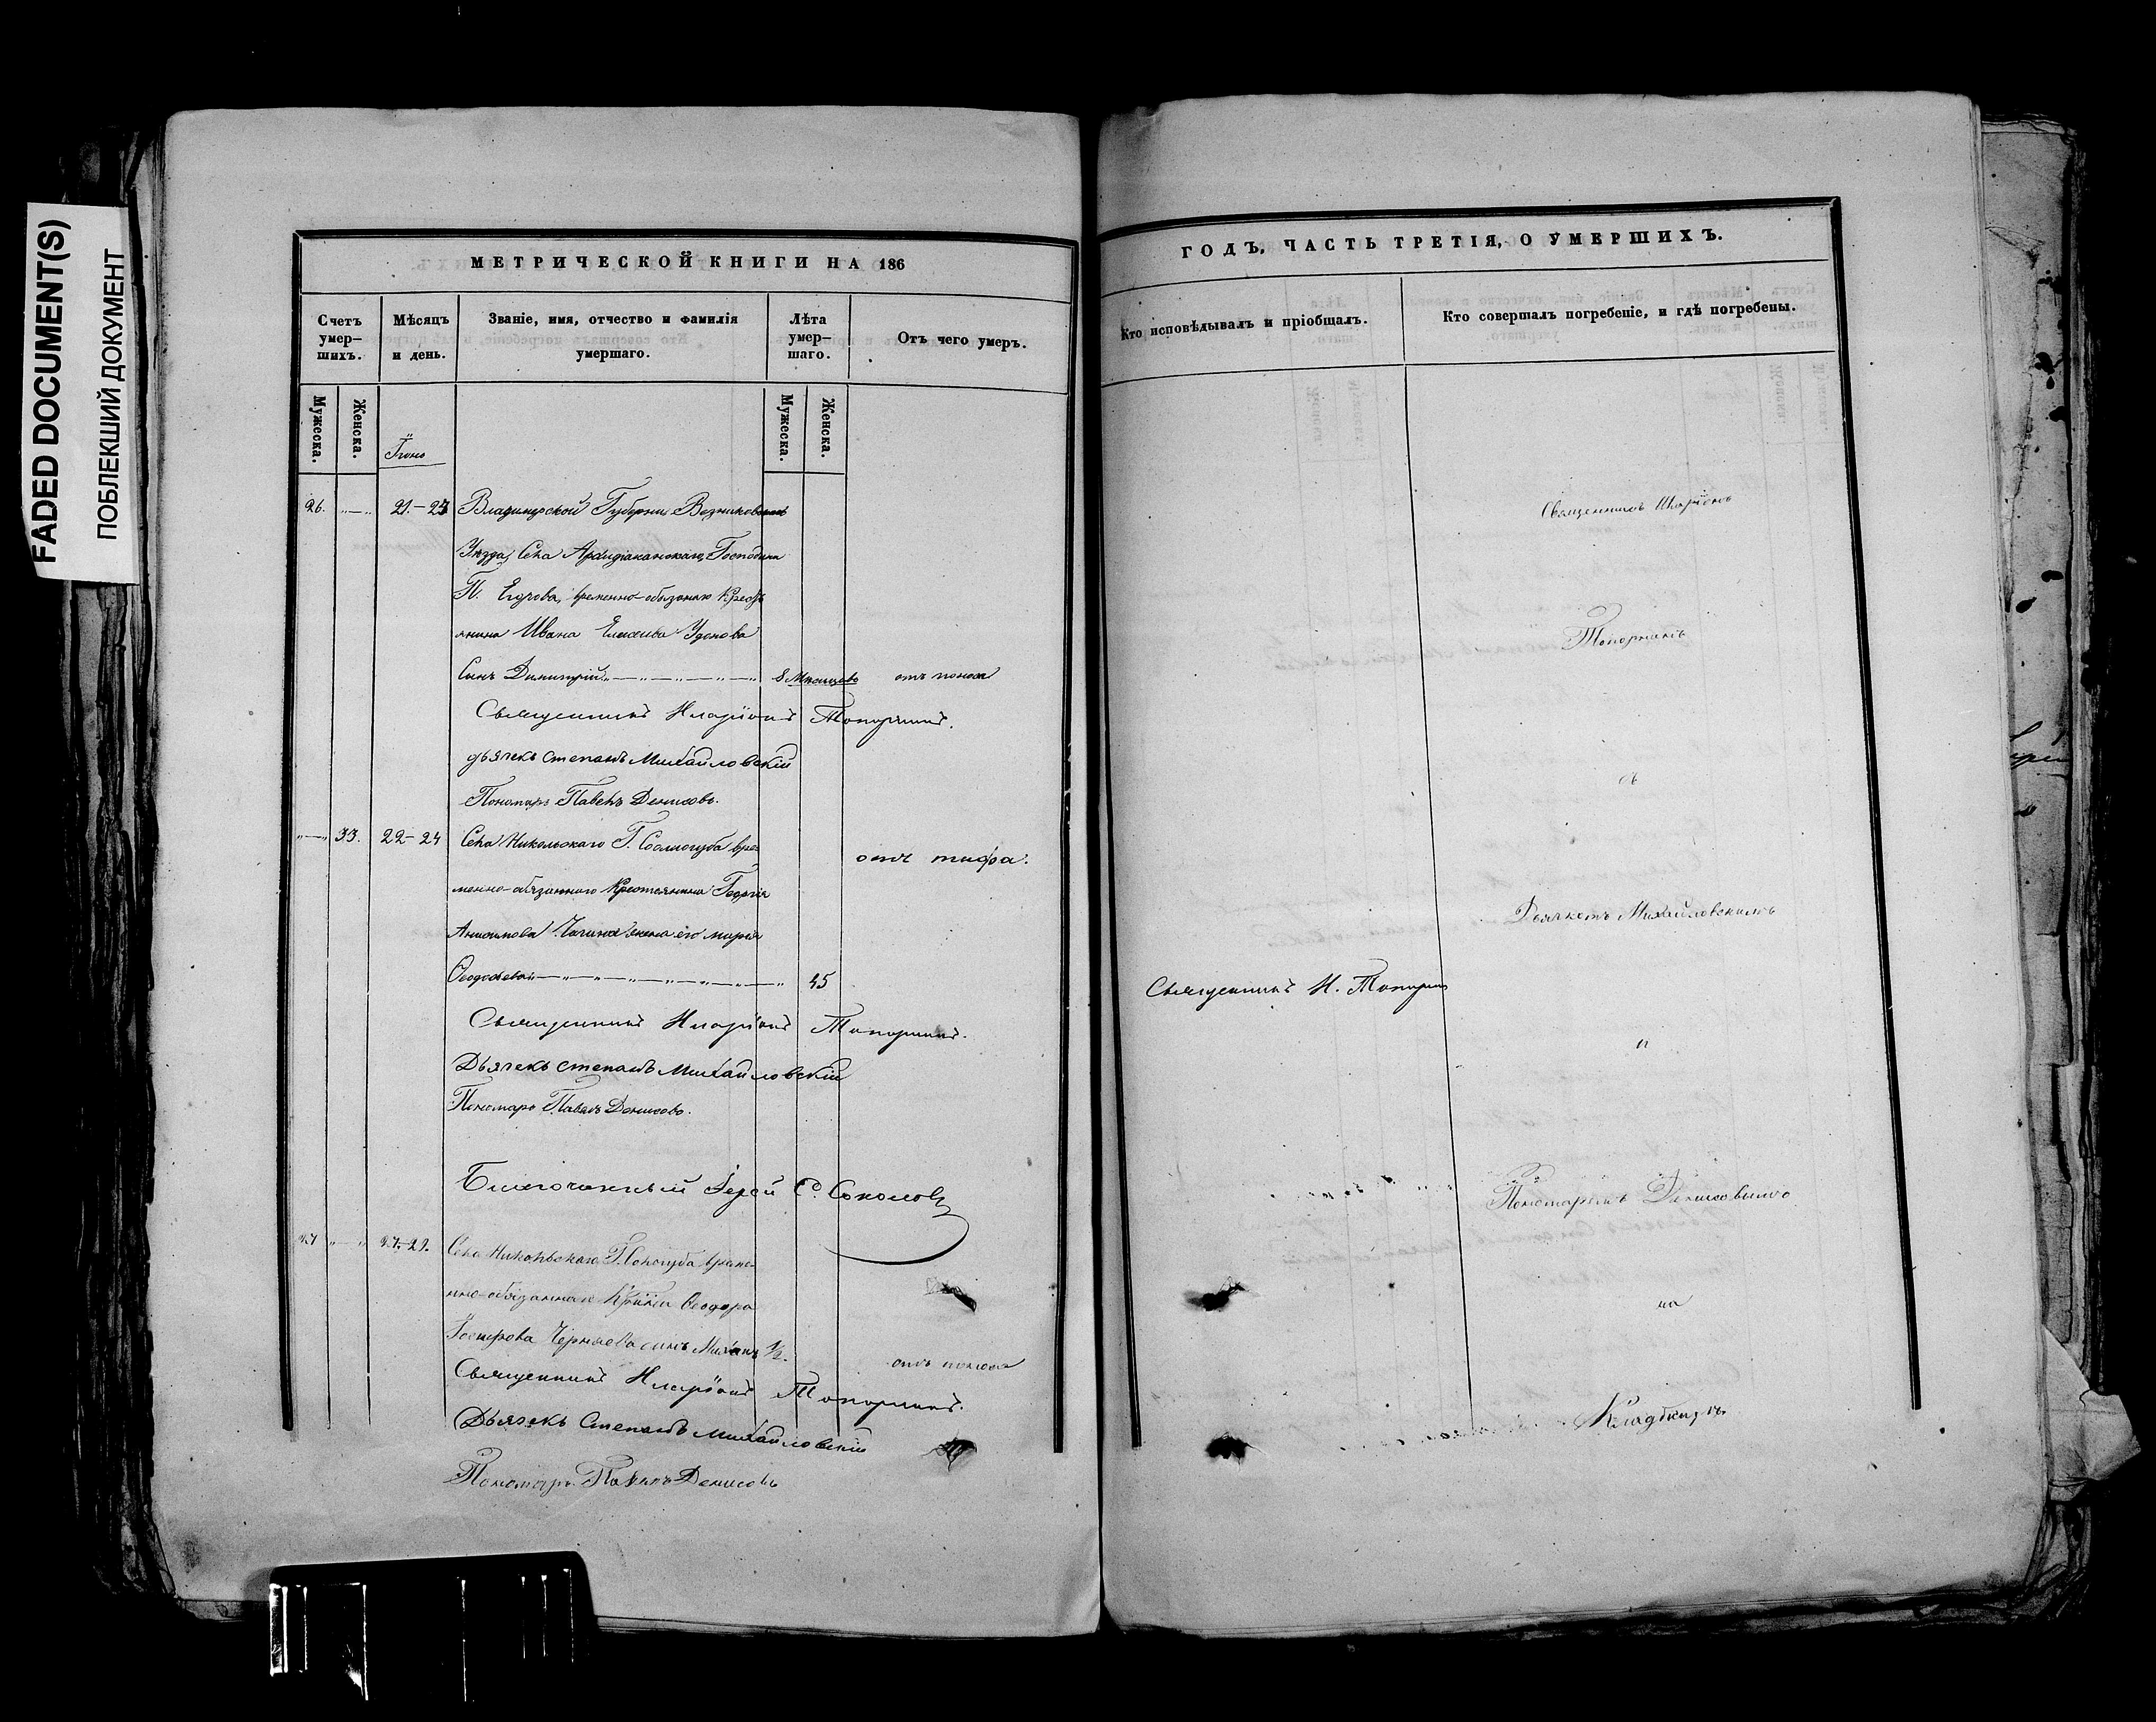 FADED DOCUMENT(S)
ПОБЛЕКШИЙ ДОКУМЕНТ
МЕТРИЧЕСКОЙ КНИГИ НА 186
Счетъ умер-шихъ.
Мѣсяцъ и день.
Званіе, имя, отчество и фамилія умершаго.
Лѣта умер-шаго.
Отъ чего умеръ.
Мужеска.
Женска.
Мужеска.
Женска.
26. 21.-23 Владимірской Губерніи Вязниковскаго
Уѣзда, Села Архидіаканскаго, Господина
временно-обязаннаго Крестъ
янина Ивана
Сынъ Димитрій 8 Мѣсяцевъ отъ поноса
Священникъ Иларіонъ Топорнинъ.
дьячекъ Степанъ Михайловскій
Пономарь Павелъ Денисовъ.
33. 22-24 Села Никольскаго Г. Соллогуба вре
менно-обязаннаго Крестьянина Георгія
Анисимова жена его Марія
Ѳеодосіева 45 отъ тифа.
Священникъ Иларіонъ Топорнинъ.
Дьячекъ Степанъ Михайловскій
Пономарь Павелъ Денисовъ.
Благочинный Іерей С. Соколовъ
27 27-29. Села Никольскаго Г. Сологуба време-
нно-обязаннаго Ѳеодора
Черняева сынъ 1/2. отъ поноса
Священникъ Иларіонъ Топорнинъ.
Дьячекъ Степанъ Михайловскій
Пономарь Павелъ Денисовъ
ГОДЪ, ЧАСТЬ ТРЕТІЯ, О УМЕРШИХЪ.
Кто исповѣдывалъ и пріобщалъ.
Кто совершалъ погребеніе, и гдѣ погребены.
Священникъ Иларіонъ
Топорнинъ
съ
Дьячкомъ Михайловскимъ
Священникъ И. Топорнинъ
и
Пономаремъ Денисовымъ
на
Кладбищѣ